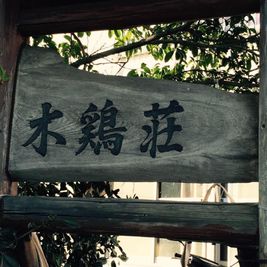 木鶏荘